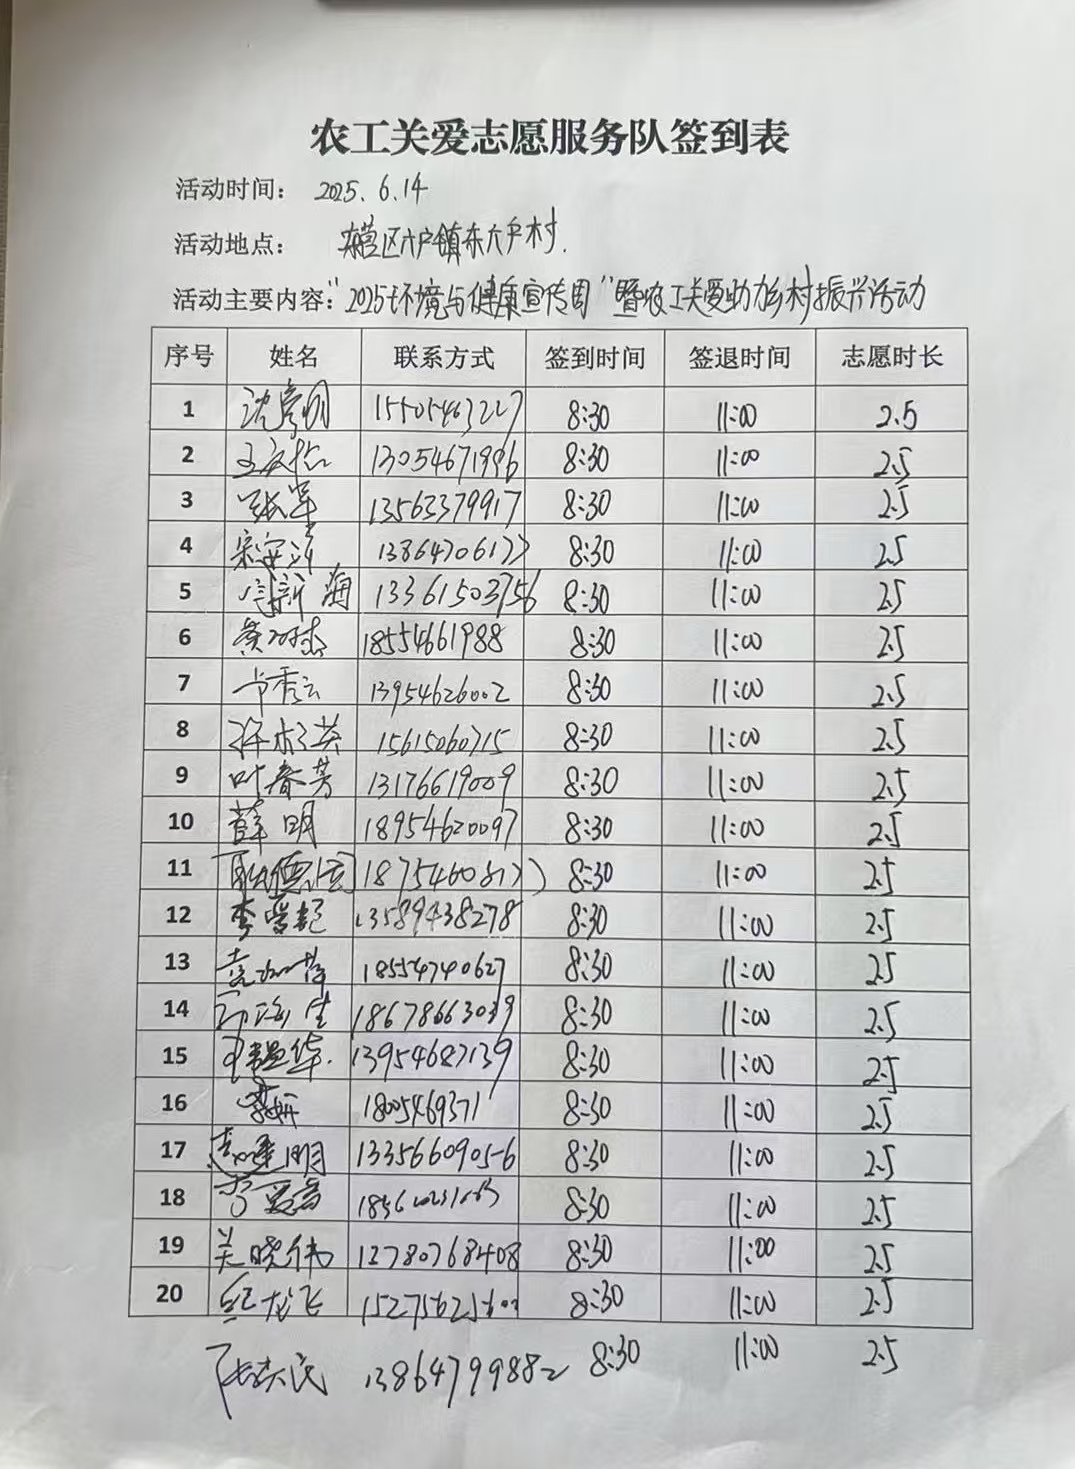 农工关爱志愿服务队签到表
活动时间： 2025.6.14
活动地点： 东营区六户镇东六户村.
活动主要内容：“2025环境与健康宣传周”暨农工关爱助力乡村振兴活动
序号 姓名 联系方式 签到时间 签退时间 志愿时长
1 8:30 11:00 2.5
2 13054671996 8:30 11:00 2.5
3 张军 13563379917 8:30 11:00 2.5
4 8:30 11:00 2.5
5 13361503756 8:30 11:00 2.5
6 18554661988 8:30 11:00 2.5
7 卞秀云 13954626002 8:30 11:00 2.5
8 15615060715 8:30 11:00 2.5
9 叶春芳 13176619009 8:30 11:00 2.5
10 薛明 18954620097 8:30 11:00 2.5
11 8:30 11:00 2.5
12 13589438278 8:30 11:00 2.5
13 18554740627 8:30 11:00 2.5
14 18678663039 8:30 11:00 2.5
15 13954687139 8:30 11:00 2.5
16 8:30 11:00 2.5
17 13356609056 8:30 11:00 2.5
18 8:30 11:00 2.5
19 吴晓伟 8:30 11:00 2.5
20 纪龙飞 8:30 11:00 2.5
13864799882 8:30 11:00 2.5